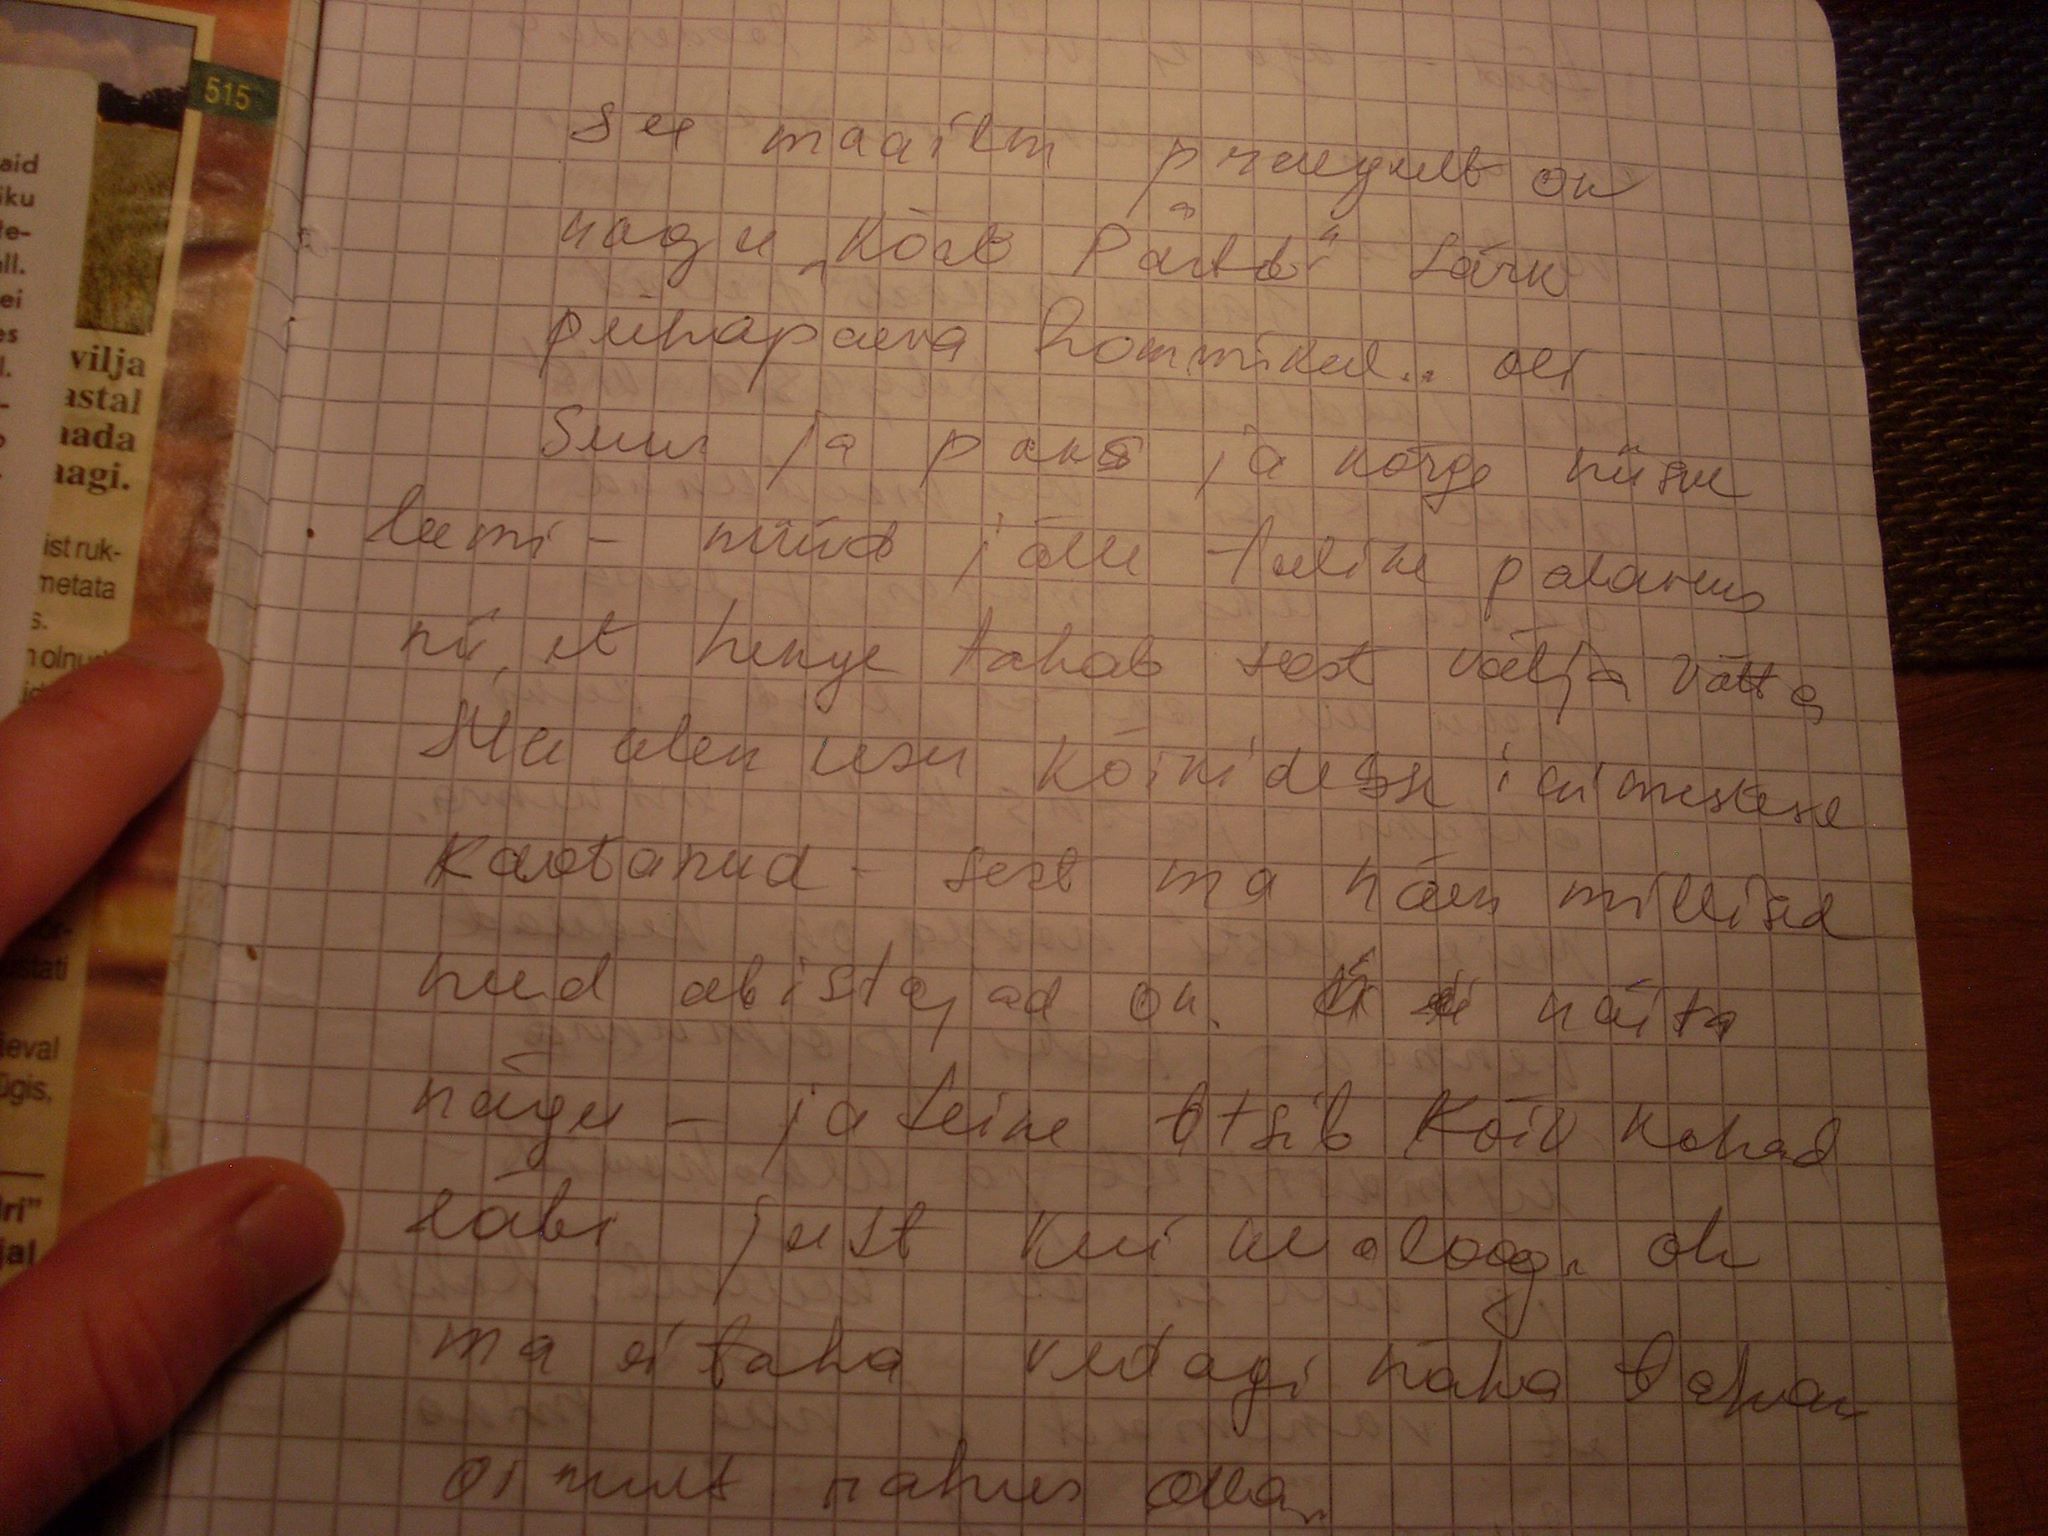 515
aid
iku
de-
ll.
ei
es
vilja
astal
aada
aagi.
ist ruk-
metata
s.
n olnud
stati
eval
ügis,
Iri"
jal
See maailm praegult on
nagu „Kört Pärtli" särk
pühapaeva hommikul.. oli
Suur ja paks ja kõrge niiske
lumi - nüüd jälle tuline palavus
nii, et henge tahab seest välja võtta
Ma olen usu kõikidesse inimestese
Kaotanud - sest ma näen millised
need abistajad on. ei näita
nägu - ja teine otsib Kõik kohad
läbi just kui uroloog. oh
ma ei taha kedagi näha tahan
ainult rahus olla.